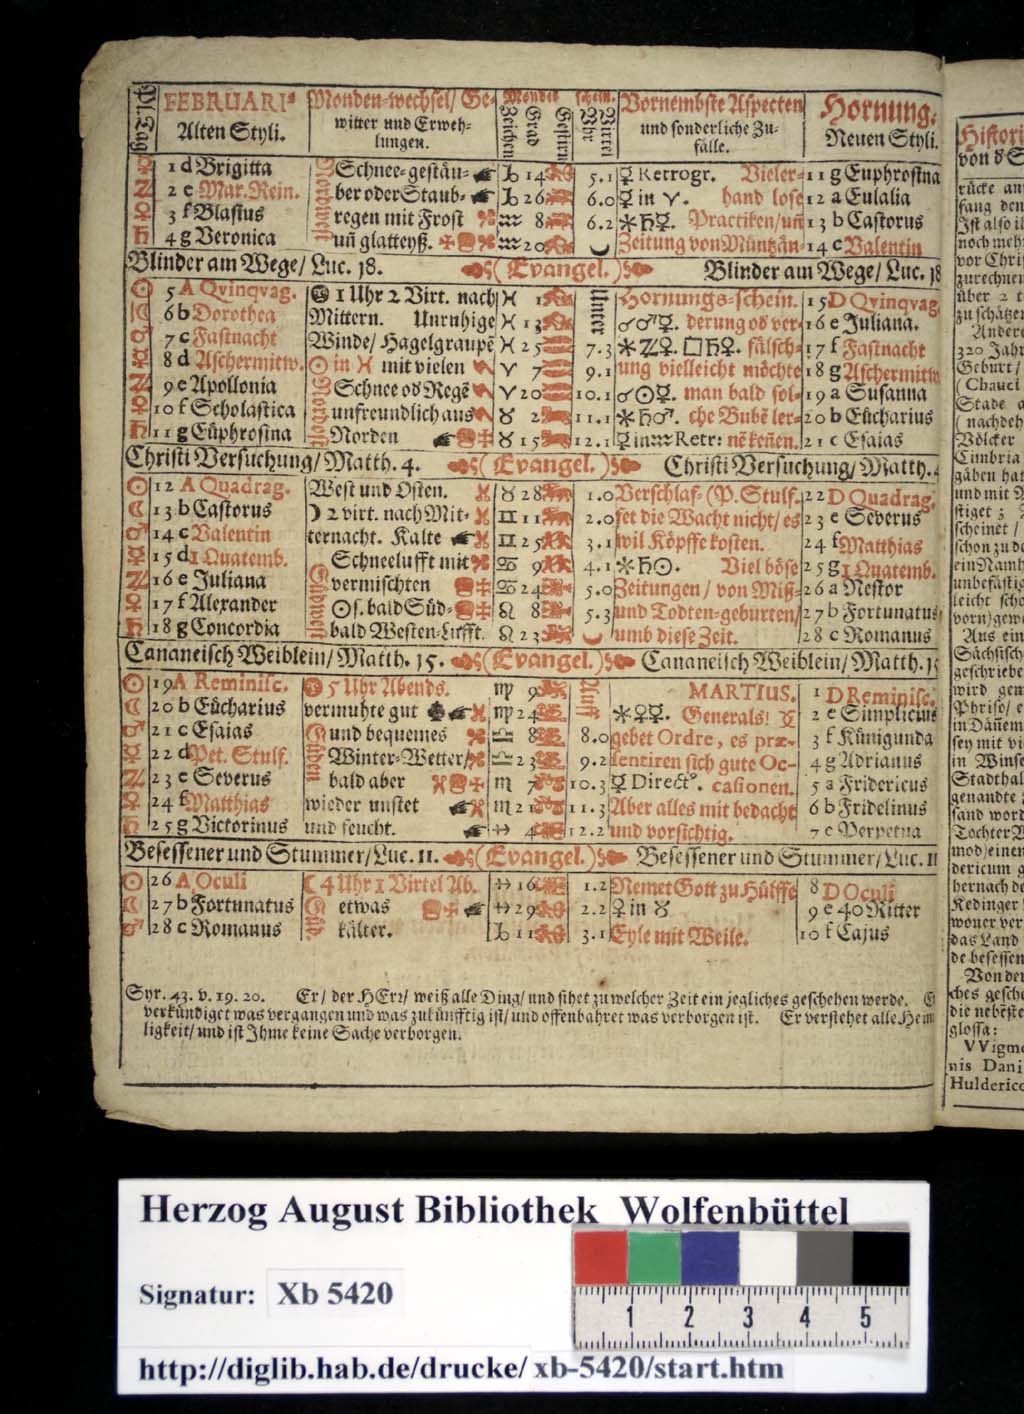 FEBRUARI⁹ Monden-wechsel/ Ge- Mondes schein. Vornembste Aspecten Hornung.
Alten Styli. witter und Erweh- lungen. Zeichen Grad und sonderliche Zu- fälle. Neuen Styli.
☿ 1 d Brigitta Schnee-gestäu- ♑ 14 5.1 ☿ Retrogr. Vieler- 11 g Euphrosina
♃ 2 e Mar. Rein. ber oder Staub- ♑ 26 6.0 ☿ in ♈. hand lose 12 a Eulalia
♀ 3 f Blasius regen mit Frost ♒ 8 6.2 ⚹♄☿. Practiken/ uñ 13 b Castorus
♄ 4 g Veronica uñ glatteyß. ♒ 20 Zeitung von Müntzän- 14 c Valentin
Blinder am Wege/ Luc. 18. (Evangel.) Blinder am Wege/ Luc. 18
☉ 5 A Qvinqvag. 1 Uhr 2 Virt. nach ♓ 1 Hornungs-schein. 15 D Qvinqvag
☾ 6 b Dorothea Mittern. Unruhige ♓ 13 ☌♂☿. derung od ver- 16 e Juliana.
♂ 7 c Fastnacht Winde/ Hagelgraupē ♓ 25 7.3 ⚹♃♀. □♄♀. fälsch- 17 f Fastnacht
☿ 8 d Aschermitw. ☉ in ♓ mit vielen ♈ 7 9.1 ung vielleicht möchte 18 g Aschermitw
♃ 9 e Apollonia Schnee od Regē ♈ 20 10.1 ☌☉☿. man bald sol- 19 a Susanna
♀ 10 f Scholastica unfreundlich aus ♉ 2 11.1 ⚹♄♂. che Bubē ler- 20 b Eücharius
♄ 11 g Eüphrosina Norden ♉ 15 12.1 ☿ in ♒ Retr: nē keñen. 21 c Esaias
Christi Versuchung/ Matth. 4. (Evangel.) Christi Versuchung/ Matth. 4
☉ 12 A Quadrag. West und Osten. ♉ 28 1.0 Verschlaf- (P. Stulf. 22 D Quadrag.
☾ 13 b Castorus ☽ 2 virt. nach Mit- ♊ 11 2.0 fet die Wacht nicht/ es 23 e Severus
♂ 14 c Valentin ternacht. Kalte ♊ 25 3.1 wil Köpffe kosten. 24 f Matthias
☿ 15 d 1 Quatemb. Schneelufft mit ♋ 9 4.1 ⚹♄☉. Viel böse 25 g 1 Quatemb.
♃ 16 e Juliana vermischten ♋ 24 5.0 Zeitungen/ von Miß- 26 a Nestor
♀ 17 f Alexander ☉s. bald Süd- ♌ 8 5.3 und Todten-geburten/ 27 b Fortunatus
♄ 18 g Concordia bald Westen-Lufft. ♌ 23 umb diese Zeit. 28 c Romanus
Cananeisch Weiblein/ Matth. 15. (Evangel.) Cananeisch Weiblein/ Matth. 15
☉ 19 A Reminisc. 5 Uhr Abends. ♍ 9 MARTIUS. 1 D Reminisc.
☾ 20 b Eücharius vermuhte gut ♍ 24 ⚹♀☿. Generals! 2 e Simplicius
♂ 21 c Esaias und bequemes ♎ 8 8.0 gebet Ordre, es præ- 3 f Künigunda
☿ 22 d Pet. Stulf. Winter-Wetter/ ♎ 23 9.2 sentiren sich gute Oc- 4 g Adrianus
♃ 23 e Severus bald aber ♏ 7 10.3 ☿ Direct⁹. casionen. 5 a Fridericus
♀ 24 f Matthias wieder unstet ♏ 21 11.3 Aber alles mit bedacht 6 b Fridelinus
♄ 25 g Victorinus und feucht. ♐ 4 12.2 und vorsichtig. 7 c Perpetua
Besessener und Stummer/ Luc. 11. (Evangel.) Besessener und Stummer/ Luc. 11
☉ 26 A Oculi ☾ 4 Uhr 1 Virtel Ab. ♐ 16 1.2 Nemet Gott zu Hülffe 8 D Oculi
☾ 27 b Fortunatus etwas ♐ 29 2.2 ♀ in ♉ 9 e 40 Ritter
♂ 28 c Romanus kälter. ♑ 11 3.1 Eyle mit Weile. 10 f Cajus
Syr. 43. v. 19. 20. Er/ der HErr/ weiß alle Ding/ und sihet zu welcher Zeit ein jegliches geschehen werde.
verkündiget was vergangen und was zukünfftig ist/ und offenbahret was verborgen ist. Er verstehet alle Heim
ligkeit/ und ist Ihme keine Sache verborgen.
Histori
von d S
rücke an
fang den
Ist also il
noch meh
vor Chri
zurechnen
über 2 t
zu schätzen
Andere
320 Jahr
Geburt/
(Chauci
Stade a
(nachdeh
Völcker
Cimbria
gäben hat
und mit
stiget
scheinet/
schon zu de
ein Namh
unbefästig
leicht scho
vorn) gew
Aus ein
Sächsisch
geschriebe
wird gen
Phrise/ e
in Däñem
sey mit vi
in Winse
Stadthal
genandte
sand word
Tochter
mod) einen
dericum g
hernach de
Kedinger
woner ver
das Land
de besessen
Von der
ches gesche
die nebēste
glossa:
VVigmo
nis Dani
Huldericc
Herzog August Bibliothek Wolfenbüttel
Signatur: Xb 5420
1 2 3 4 5
http://diglib.hab.de/drucke/xb-5420/start.htm